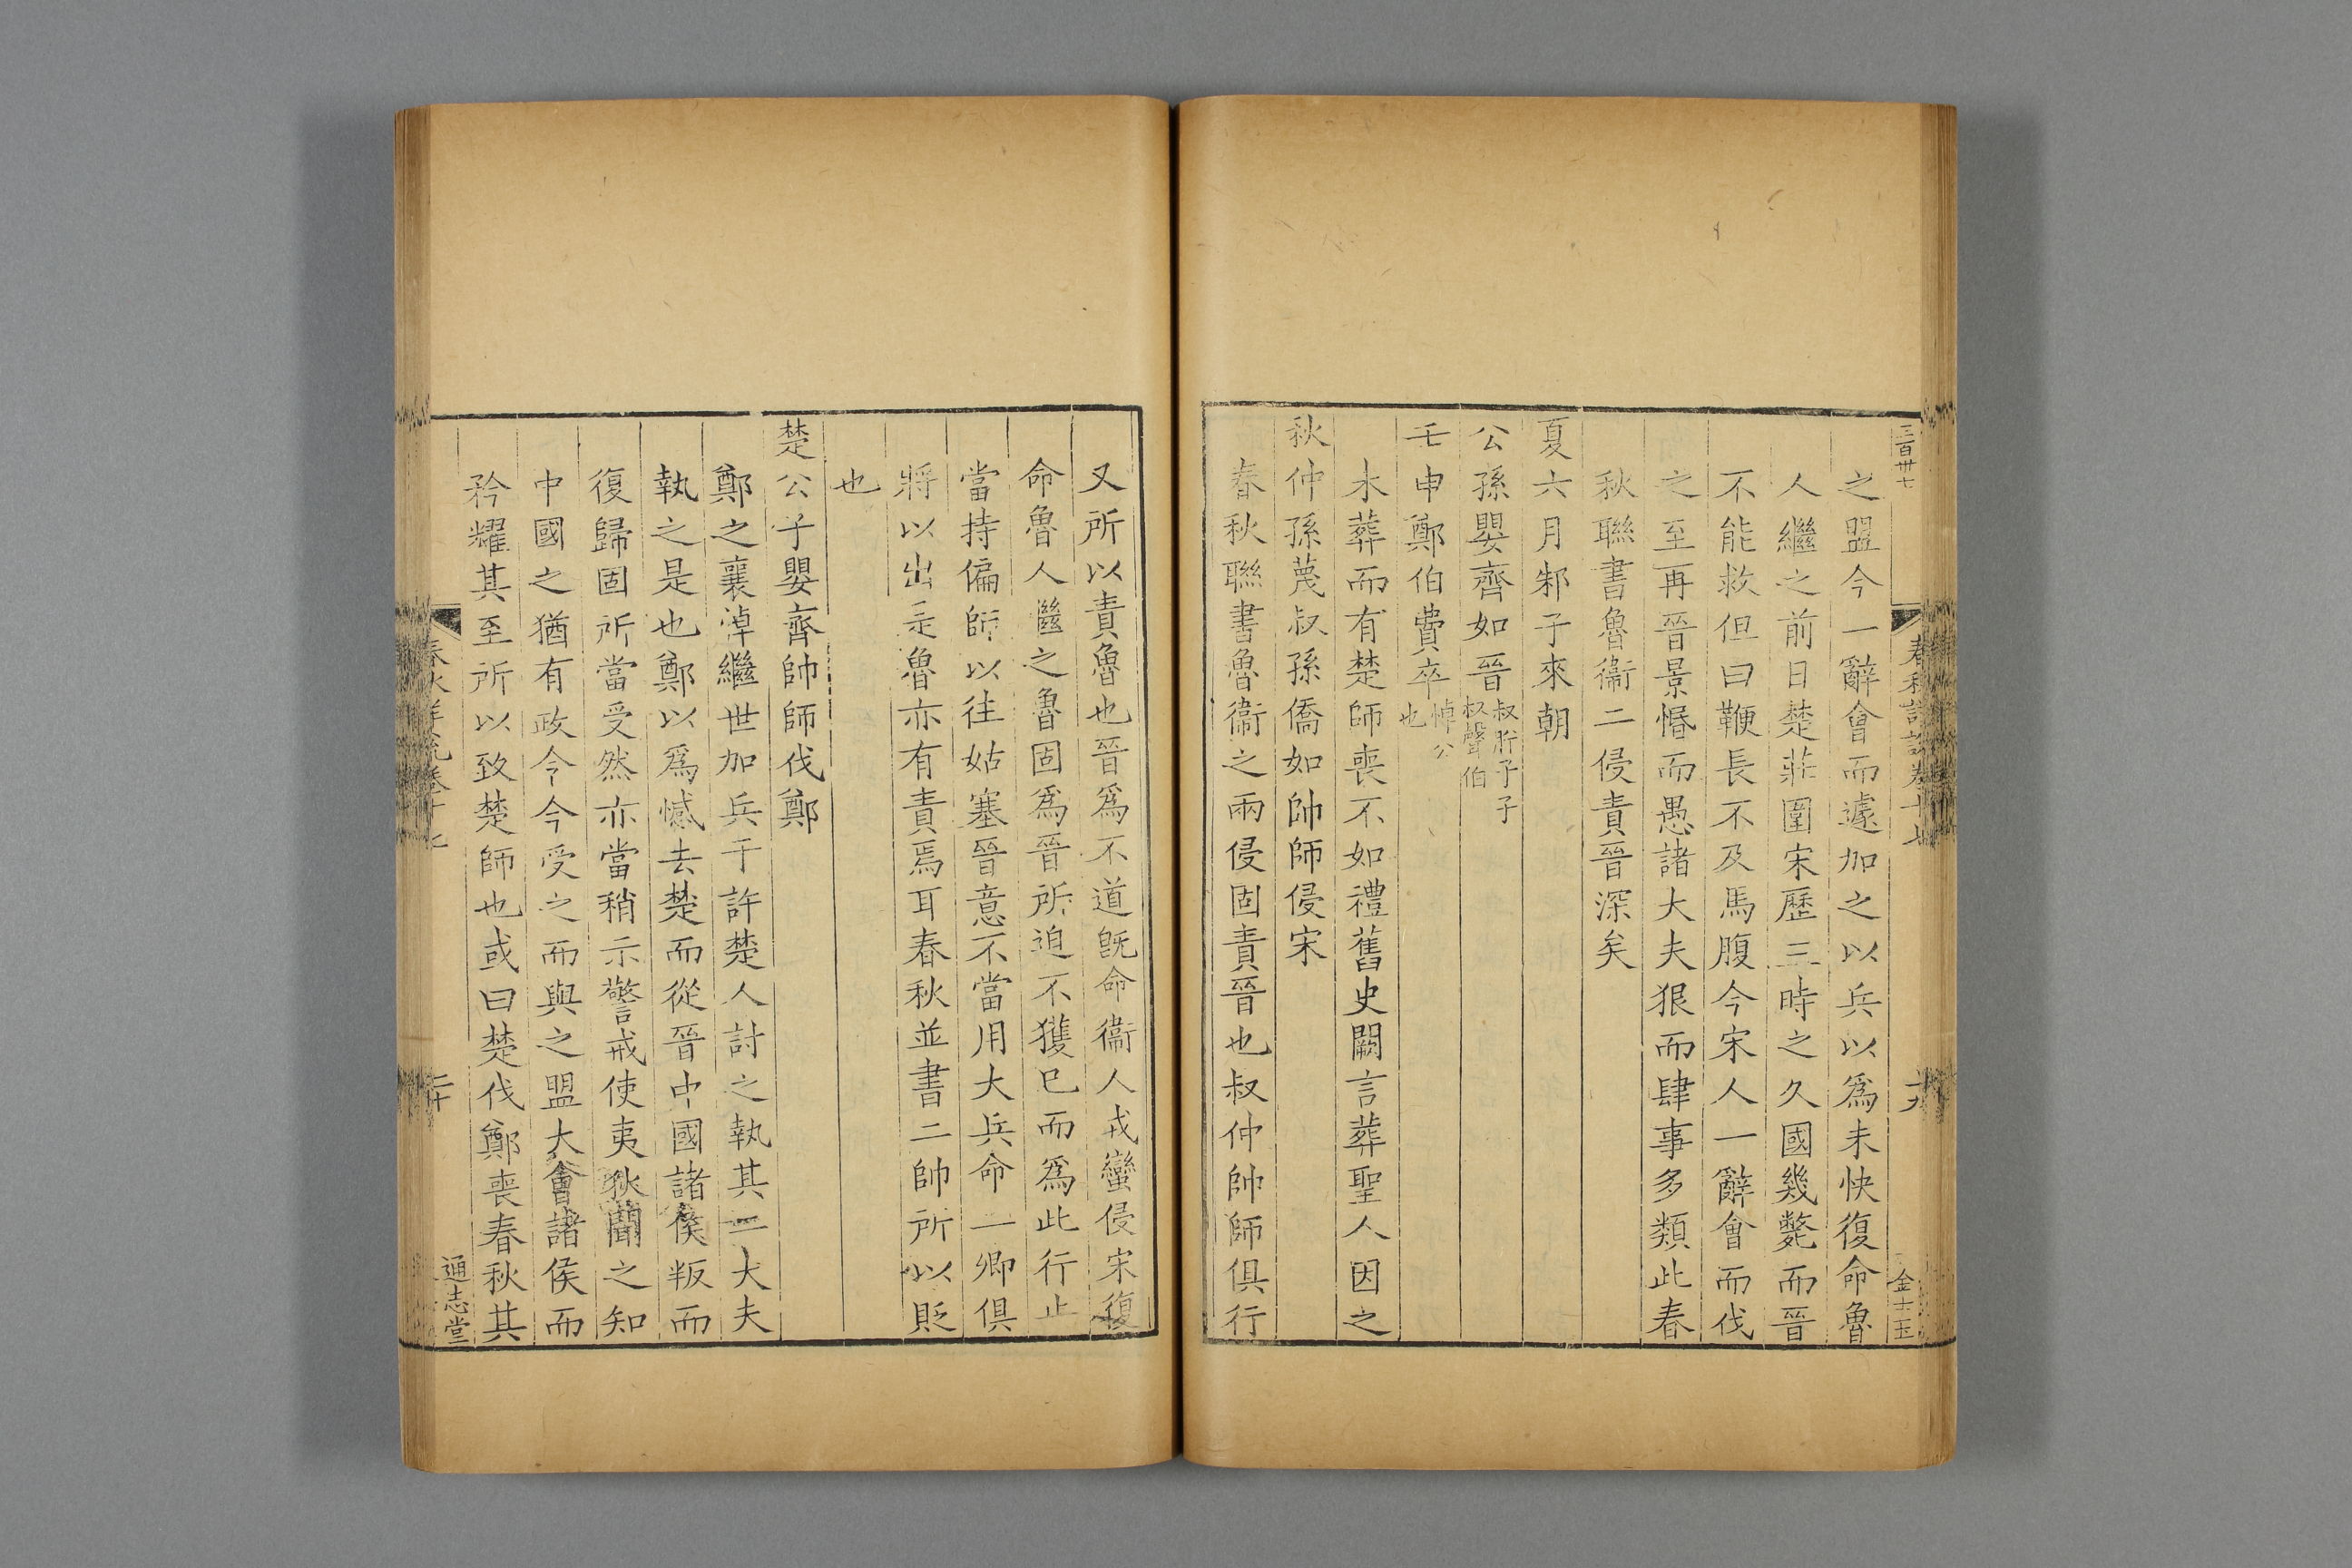 三百卅七
之盟今一辭會而遽加之以兵以爲未快復命魯
人繼之前日楚莊圍宋歷三時之久國幾斃而晉
不能救但曰鞭長不及馬腹今宋人一辭會而伐
之至再晉景惛而愚諸大夫狠而肆事多類此春
秋聯書魯衞二侵責晉深矣
夏六月邾子來朝
公孫嬰齊如晉叔肸子子
叔聲伯
壬申鄭伯費卒悼公
也
未葬而有楚師喪不如禮舊史闕言葬聖人因之
秋仲孫蔑叔孫僑如帥師侵宋
春秋聯書魯衞之兩侵固責晉也叔仲帥師俱行
春秋詳說卷十七
十九
金士玉
又所以責魯也晉爲不道旣命衞人戎蠻侵宋復
命魯人繼之魯固爲晉所迫不獲已而爲此行止
當持偏師以往姑塞晉意不當用大兵命一卿俱
將以出是魯亦有責焉耳春秋並書二帥所以貶
也
楚公子嬰齊帥師伐鄭
鄭之襄悼繼世加兵于許楚人討之執其二大夫
執之是也鄭以爲憾去楚而從晉中國諸侯叛而
復歸固所當受然亦當稍示警戒使夷狄聞之知
中國之猶有政令今受之而與之盟大會諸侯而
矜耀其至所以致楚師也或曰楚伐鄭喪春秋其
春秋詳說卷十七
二十
通志堂